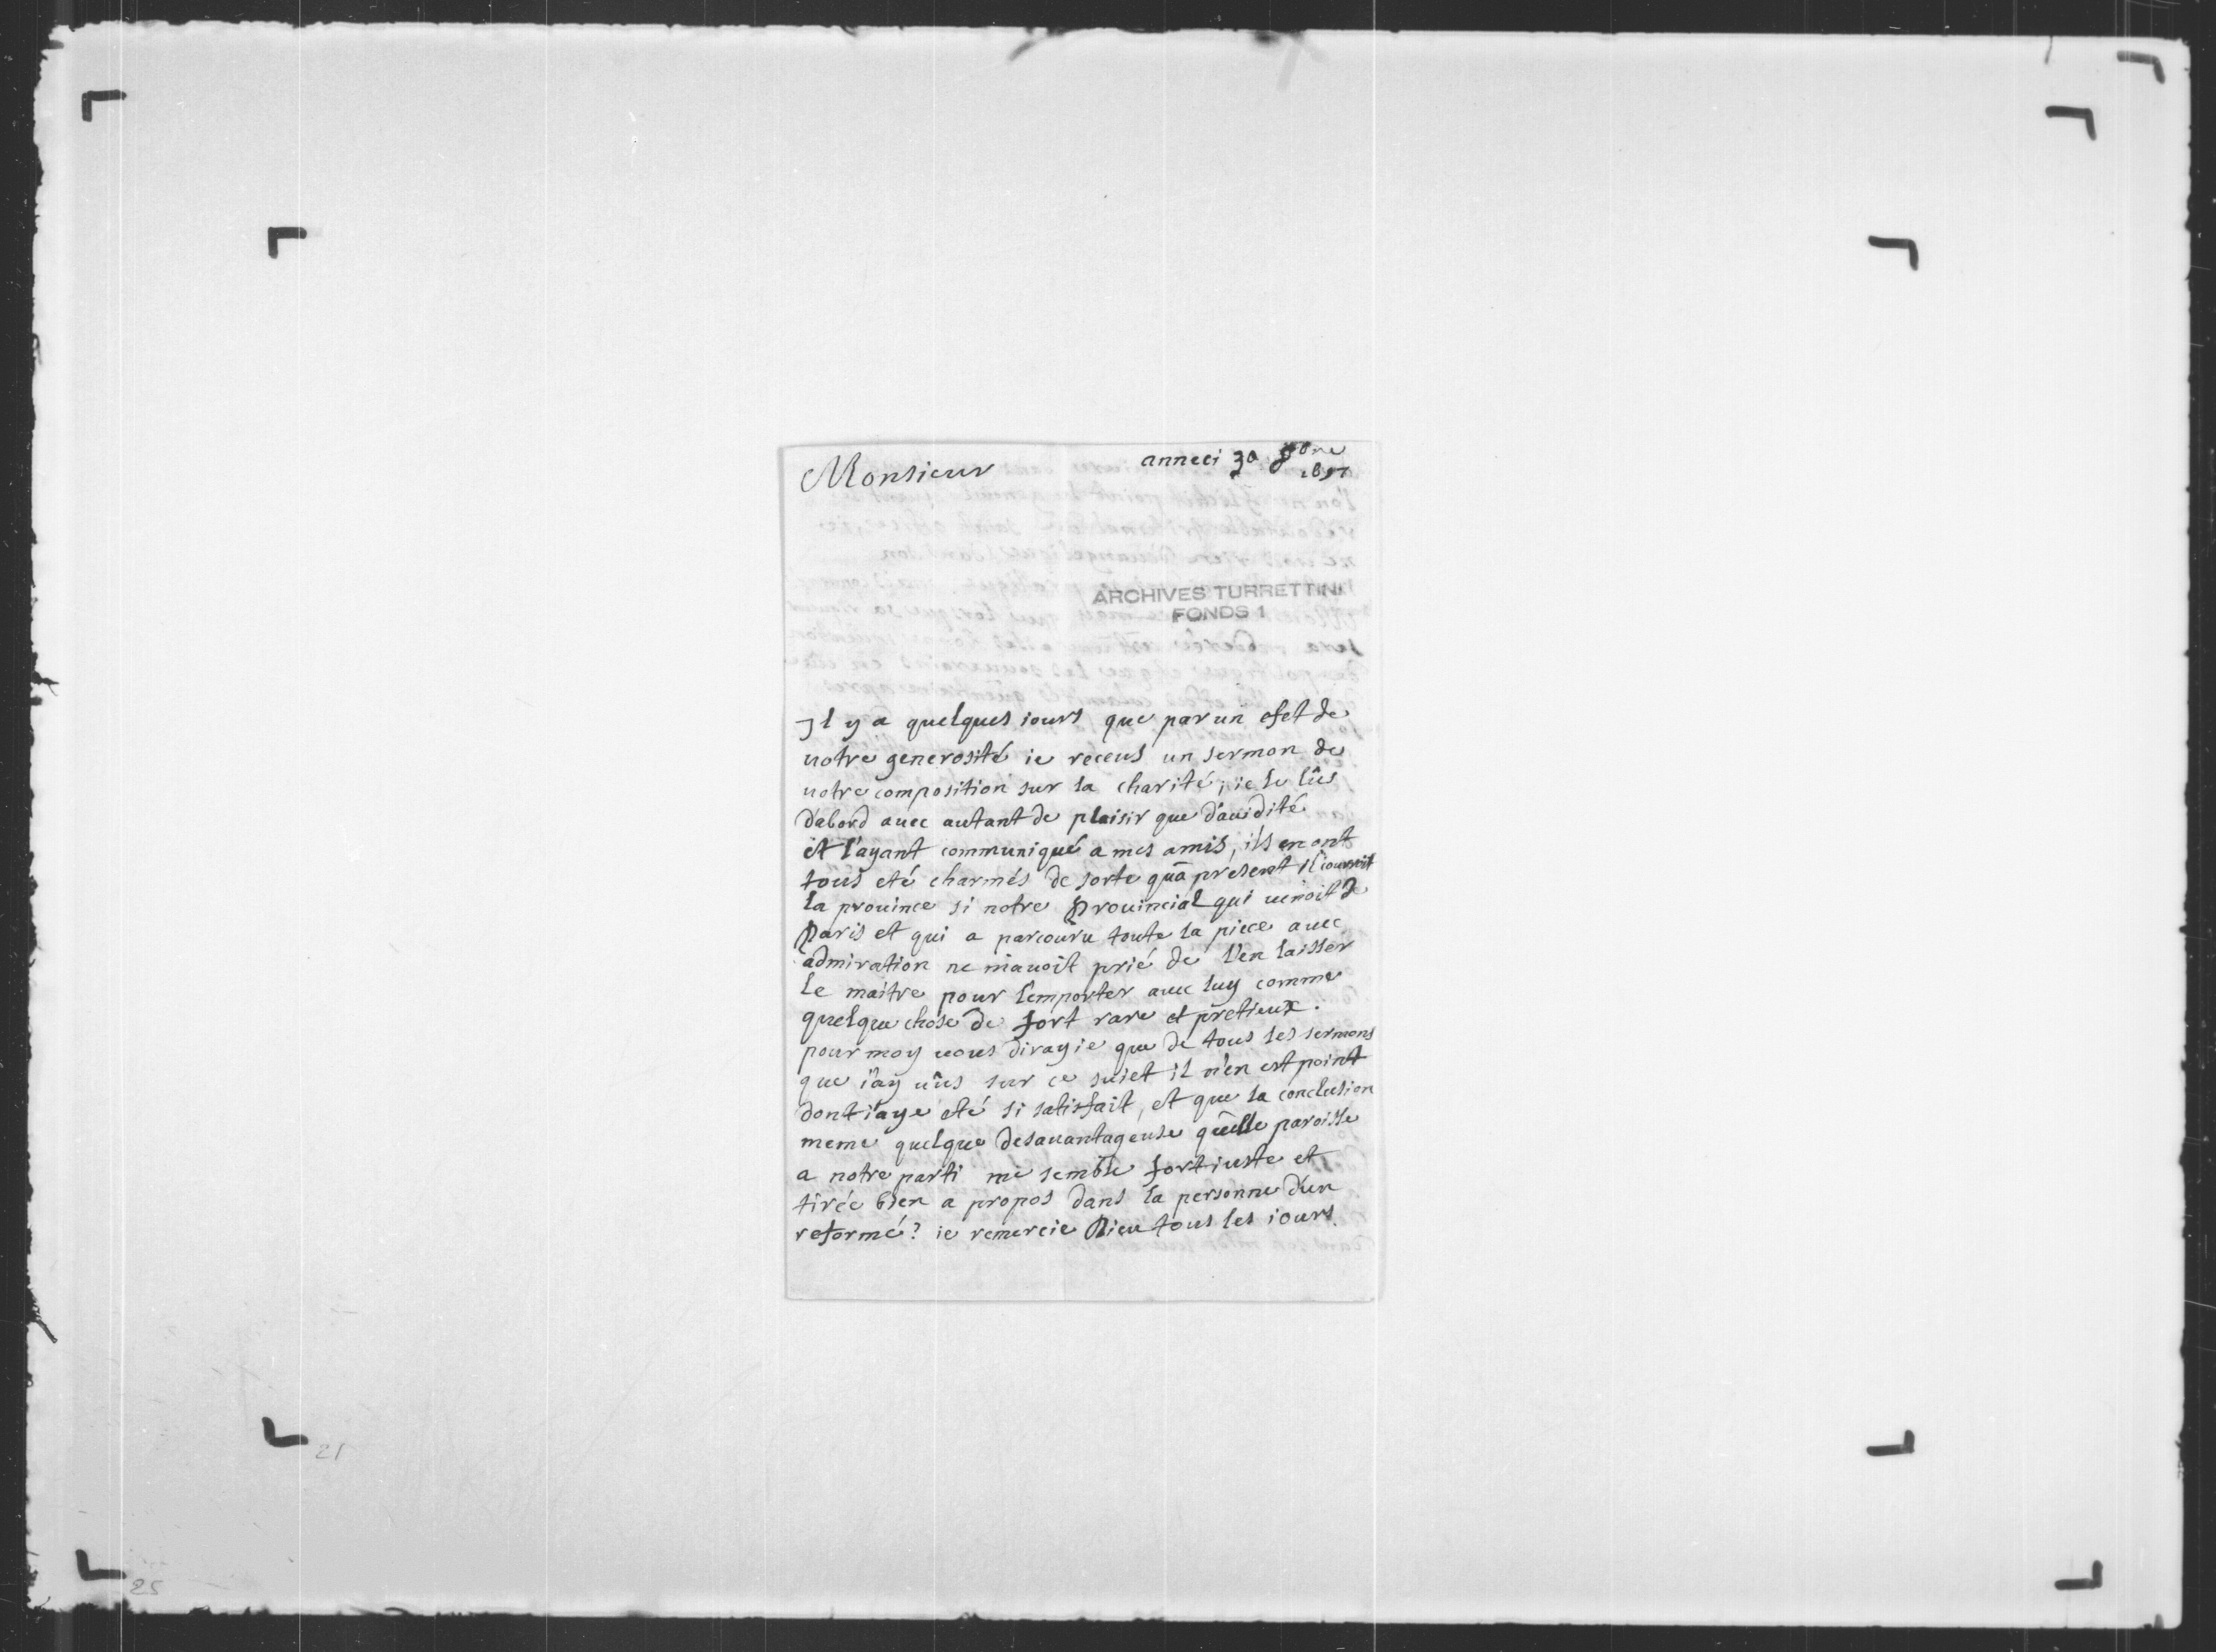 Monsieur
anneci 30 8bre
1697
ARCHIVES TURRETTINI
FONDS 1
Il y a quelques iours que par un efet de
uotre generosité ie receus un sermon de
uotre composition sur la charité; ie le lûs
d'abord auec autant de plaisir que d'auidité
et l'ayant communiqué a mes amis, ils en ont
tous eté charmés de sorte qu'a present il couroit
la prouince si notre Prouincial qui uenoit de
Paris et qui a parcouru toute la piece auec
admiration ne m'auoit prié de l'en laisser
le maitre pour l'emporter auec luy comme
quelque chose de fort rare et pretieux.
pour moy uous diray ie que de tous les sermons
que i'ay uûs sur ce suiet il n'en est point
dont i'aye eté si satisfait, et que la conclusion
meme quelque desauantageuse qu'elle paroisse
a notre parti me semble fort iuste et
tirée bien a propos dans la personne d'un
reformé? ie remercie Dieu tous les iours
21
25